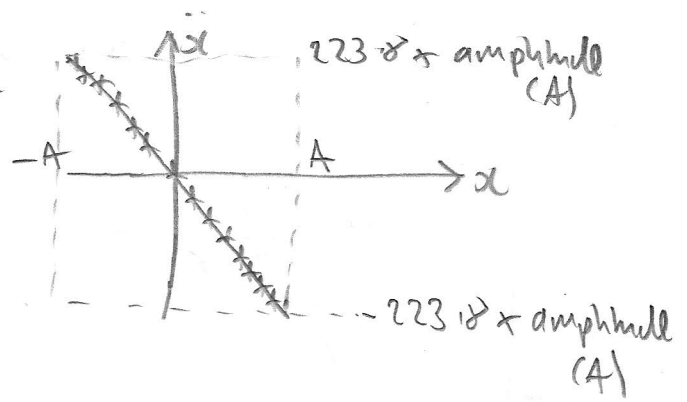 ẍ
223.8 × amplitude
(A)
-A
A
x
-223.8 × amplitude
(A)